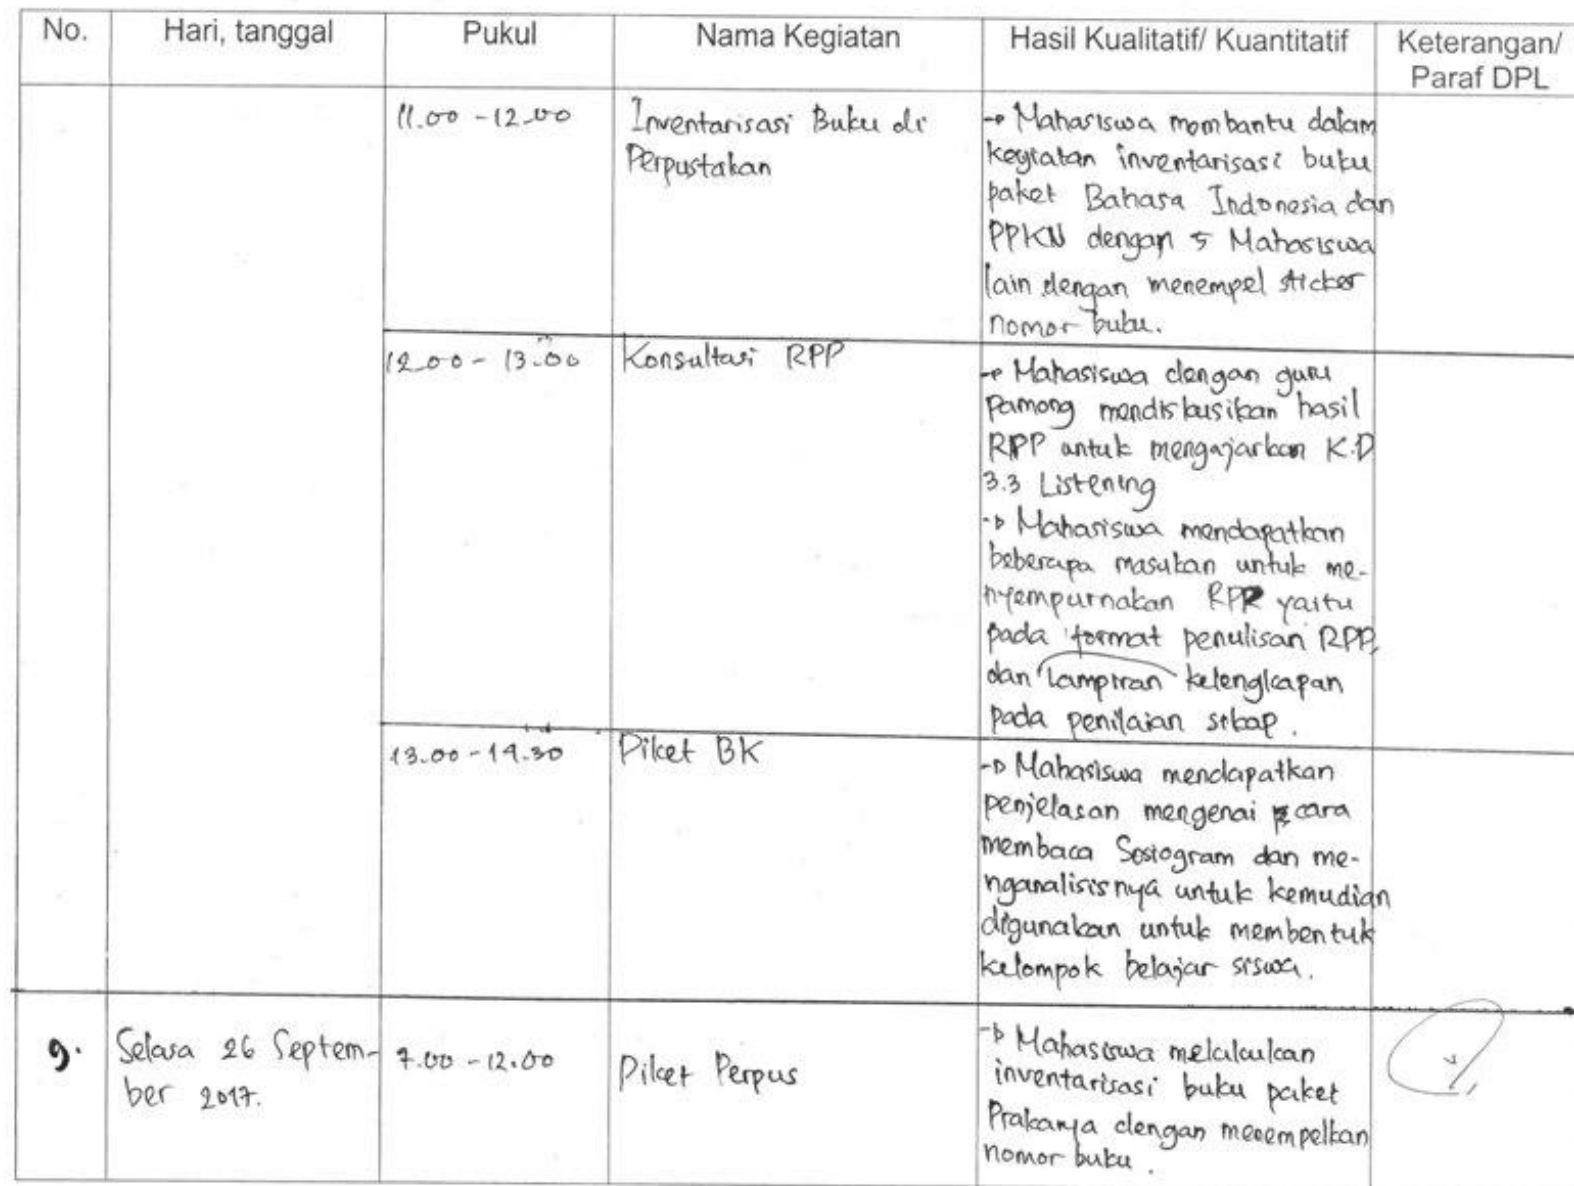 No. Hari, tanggal Pukul Nama Kegiatan Hasil Kualitatif/ Kuantitatif Keterangan/
Paraf DPL
11.00 - 12.00 Inventarisasi Buku di
Perpustakan
→ Mahasiswa membantu dalam
kegiatan inventarisasi buku
paket Bahasa Indonesia dan
PPKN dengan 5 Mahasiswa
lain dengan menempel sticker
nomor buku.
12.00 - 13.00 Konsultasi RPP
→ Mahasiswa dengan guru
pamong mendiskusikan hasil
RPP untuk mengajarkan K.D
3.3 Listening
→ Mahasiswa mendapatkan
beberapa masukan untuk me-
nyempurnakan RPP yaitu
pada format penulisan RPP,
dan lampiran kelengkapan
pada penilaian sikap.
13.00 - 14.30 Piket BK
→ Mahasiswa mendapatkan
penjelasan mengenai cara
membaca Sosiogram dan me-
nganalisisnya untuk kemudian
digunakan untuk membentuk
kelompok belajar siswa.
9. Selasa 26 Septem-
ber 2017.
7.00 - 12.00 Piket Perpus
→ Mahasiswa melakukan
inventarisasi buku paket
Prakarya dengan menempelkan
nomor buku.